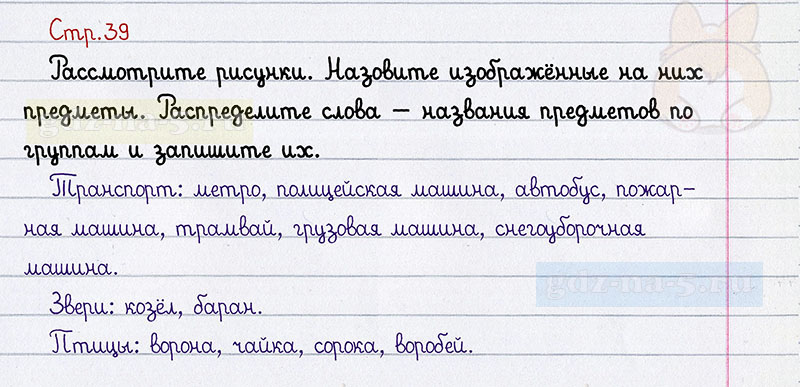 Стр.39
Рассмотрите рисунки. Назовите изображённые на них
предметы. Распределите слова — названия предметов по
группам и запишите их.
Транспорт: метро, полицейская машина, автобус, пожар-
ная машина, трамвай, грузовая машина, снегоуборочная
машина.
gdz-na-5.ru
Звери: козёл, баран.
Птицы: ворона, чайка, сорока, воробей.